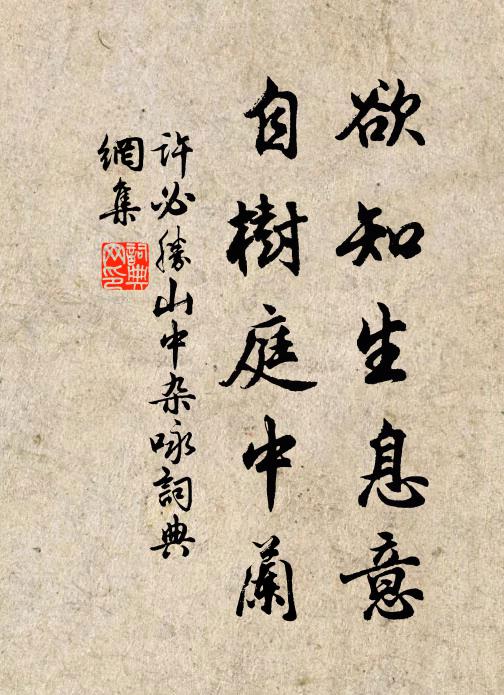 欲知生息意
自樹庭中蘭
許必勝山中杂咏詞典
網集
詞典网印